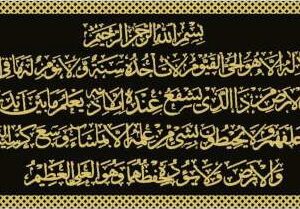 بسم الله الرحمن الرحيم
الله لا اله الا هو الحي القيوم لا تأخذه سنة ولا نوم له ما في
الارض من ذا الذي يشفع عنده الا باذنه يعلم ما بين ايد
خلفهم ولا يحيطون بشيء من علمه الا بما شاء وسع كرسيه
والارض ولا يؤده حفظهما وهو العلي العظيم